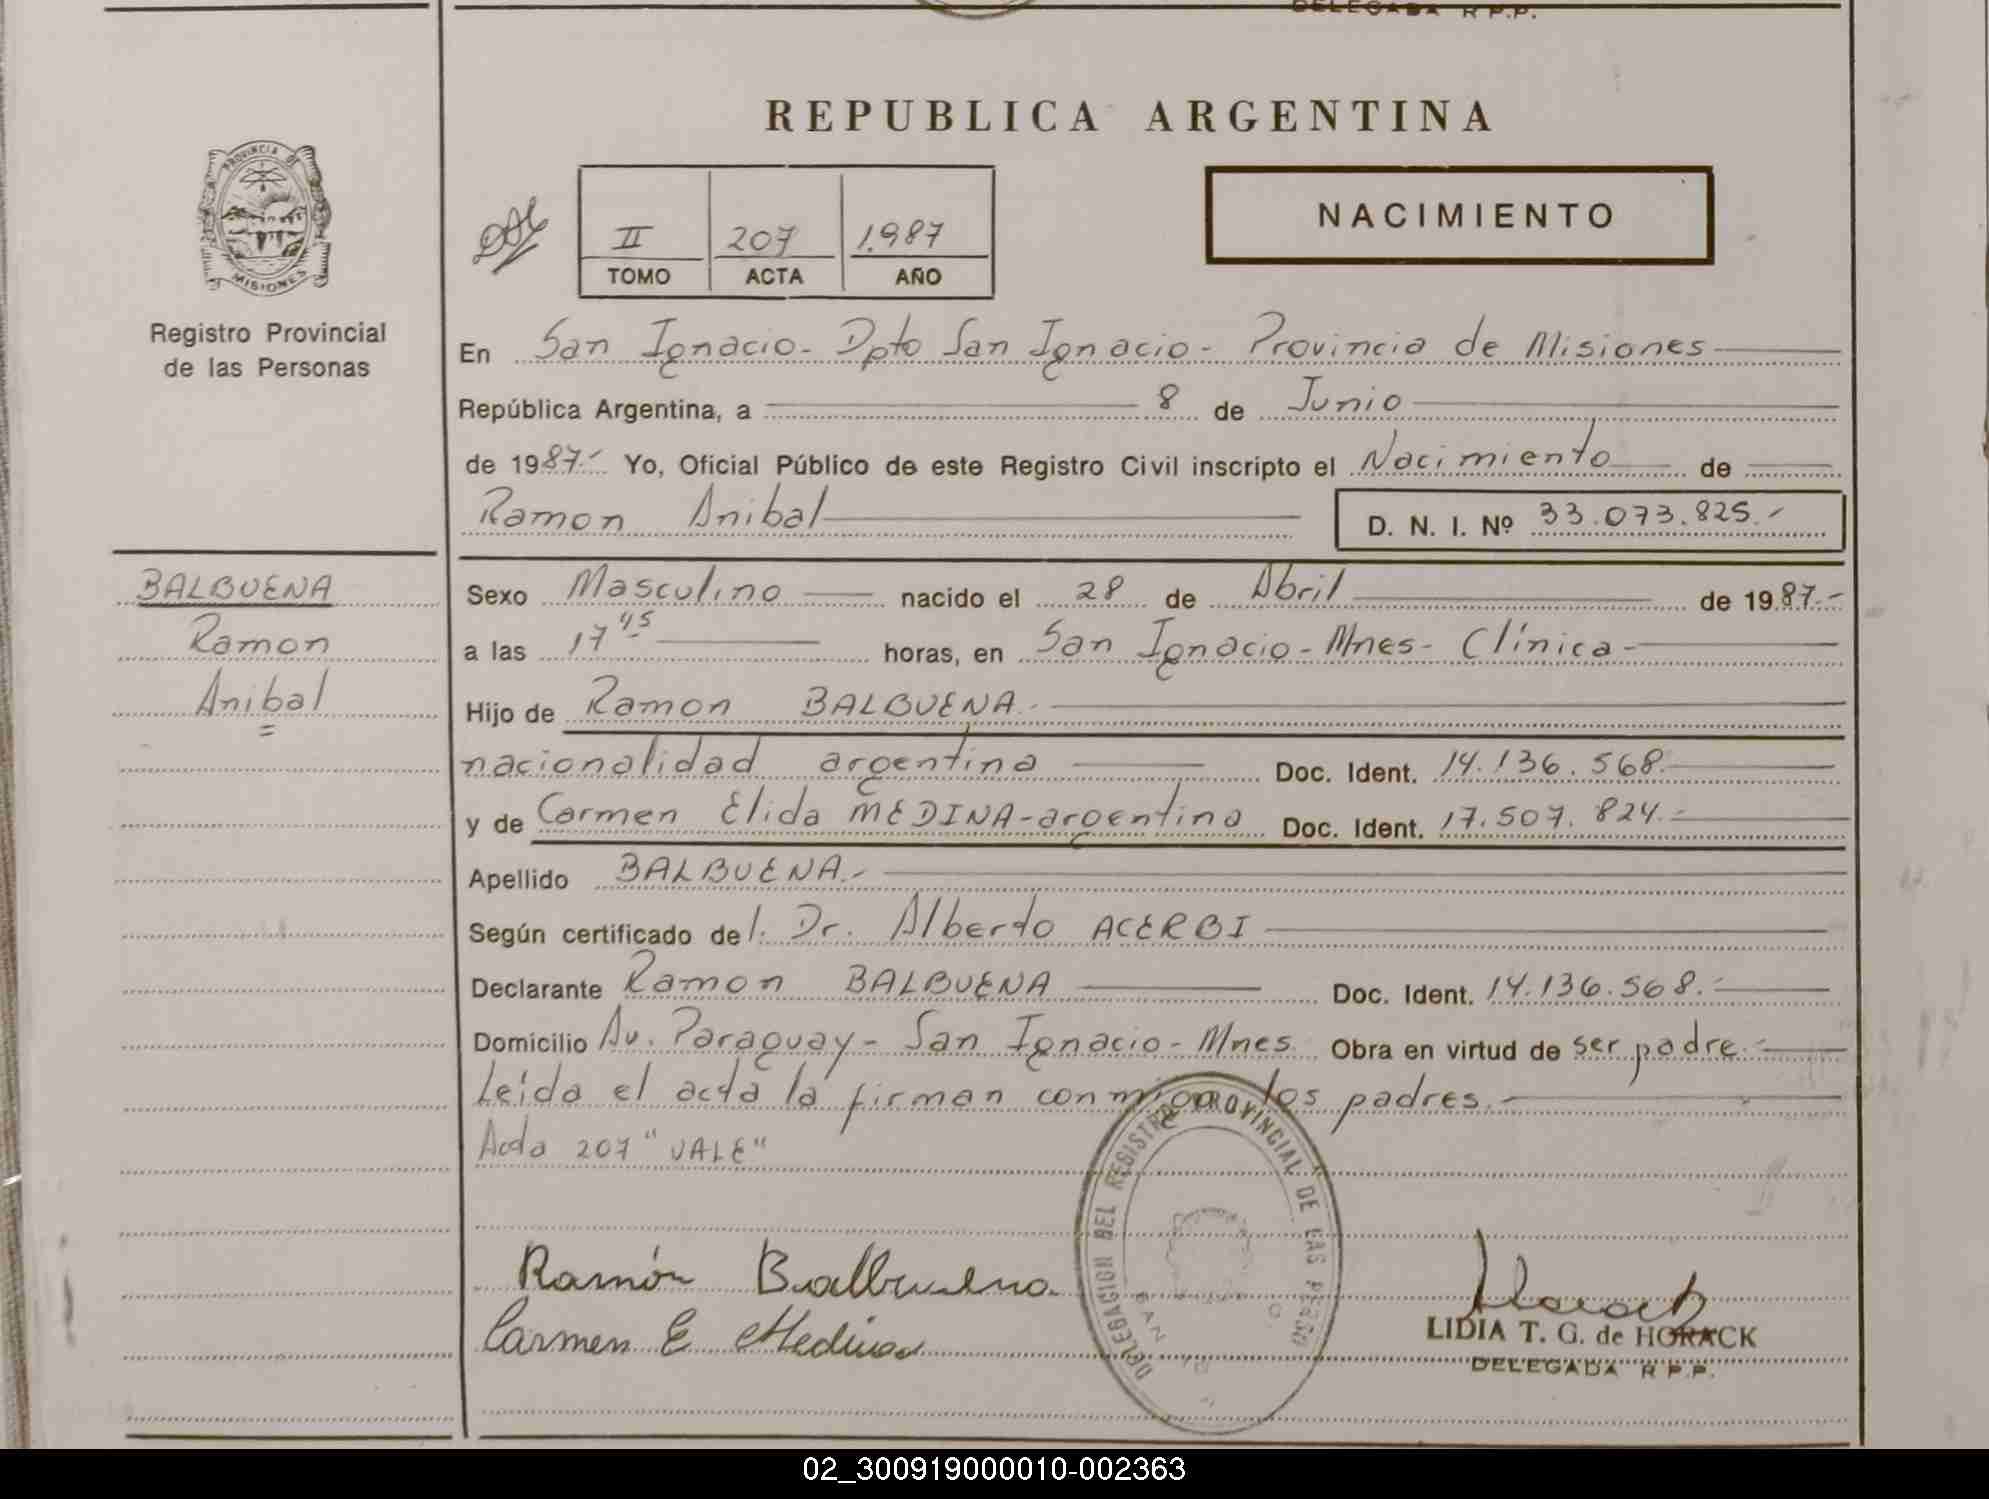 DELEGADA R P.P.
REPUBLICA ARGENTINA
PROVINCIA DE
MISIONES
Registro Provincial
de las Personas
II 207 1.987
TOMO ACTA AÑO
NACIMIENTO
En San Ignacio - Dpto San Ignacio - Provincia de Misiones
República Argentina, a 8 de Junio
de 1987.- Yo, Oficial Público de este Registro Civil inscripto el Nacimiento de
Ramon Anibal
D. N. I. Nº 33.073.825.-
BALBUENA
Ramon
Anibal
Sexo Masculino nacido el 28 de Abril de 1987.-
a las 17 45 horas, en San Ignacio - Mnes - Clínica -
Hijo de Ramon BALBUENA.-
nacionalidad argentina Doc. Ident. 14.136.568.-
y de Carmen Elida MEDINA - argentina Doc. Ident. 17.507.824.-
Apellido BALBUENA.-
Según certificado del. Dr. Alberto ACERBI
Declarante Ramon BALBUENA Doc. Ident. 14.136.568.-
Domicilio Av. Paraguay - San Ignacio - Mnes Obra en virtud de ser padre.-
Leída el acta la firman conmigo los padres.-
Acta 207 "VALE"
DELEGACION DEL REGISTRO PROVINCIAL DE LAS PERSO
SAN
Ramón Balbuena
Carmen E Medina
Horack
LIDIA T. G. de HORACK
DELEGADA R P.P.
02_300919000010-002363